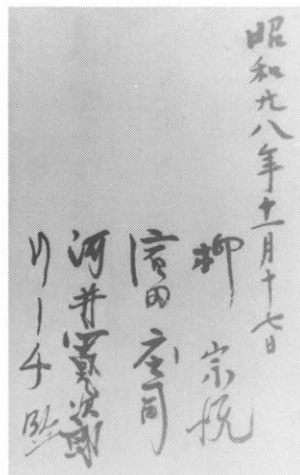 昭和廿八年十一月十七日
柳 宗悦
濱田庄司
河井寛次郎
リーチ